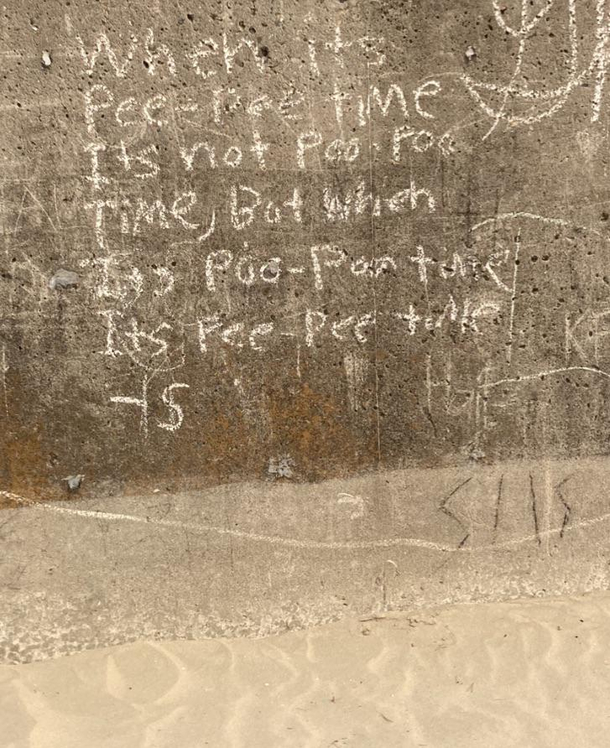 When its
Pee-Pee time
Its not Poo-Poo
Time, But When
Its Poo-Poo time
Its Pee-Pee time
-S